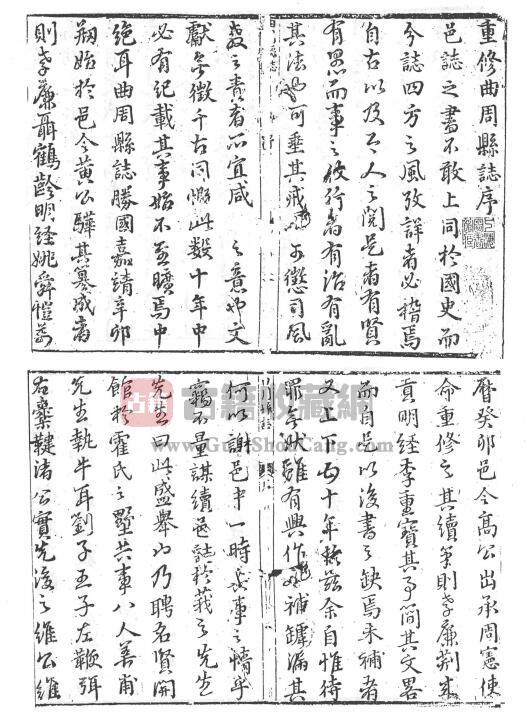 重修曲周縣誌序
邑誌之書不敢上同於國史而
今誌四方之風攷詳者必稽焉
自古以及今人之閱是者有賢
有愚而事之攸行者有治有亂
其法可垂其戒可懲司風
教之責者所宜咸之意也文
獻無徵千古同慨此數十年中
必有記載其事始不至曠焉中
絕耳曲周縣誌勝國嘉靖辛卯
剏始於邑令黃公驊其纂成者
則孝廉聶鶴齡明經姚舜愷萬
曆癸卯邑令高公出承周憲使
命重修之其續筆則孝廉荊
貢明經李重寶其事簡其文畧
而自是以後書之缺焉未補者
又上下五十年於茲余自惟待
罪無狀雖有興作補罅漏其
何以謝邑中一時長事之惰乎
竊不量謀續邑誌於莪之先生
先生曰此盛舉也乃聘名賢開
館於霍氏之墅共事八人善甫
先生執牛耳劉子王子左鞭弭
右櫜鞬渚公實先後之維公維
古籍收藏網
www.GuJiShouCang.com